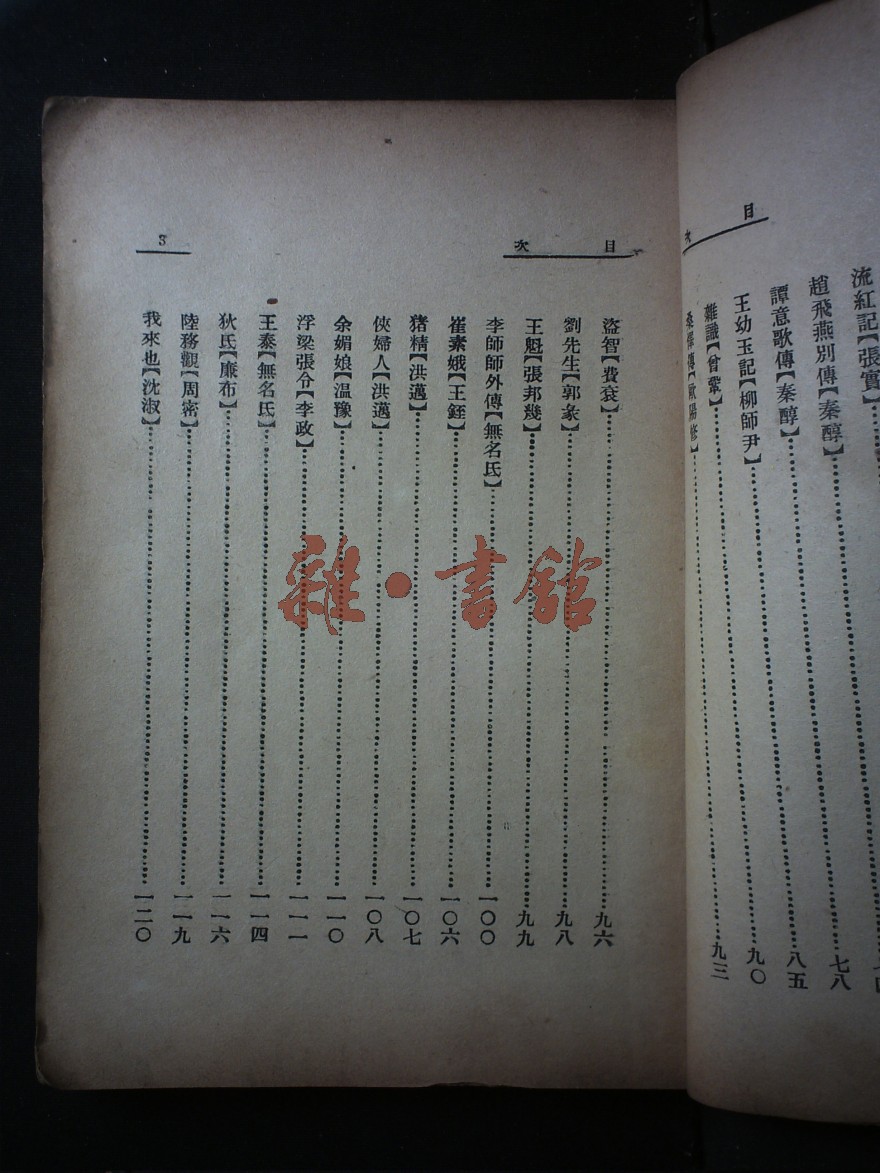 目次
流紅記【張實】
趙飛燕別傳【秦醇】……七八
譚意歌傳【秦醇】……八五
王幼玉記【柳師尹】……九〇
雜識【曾鞏】……九三
桑懌傳【歐陽修】……
目次
3
盜智【費袞】……九六
劉先生【郭彖】……九八
王魁【張邦幾】……九九
李師師外傳【無名氏】……一〇〇
崔素娥【王銍】……一〇六
猪精【洪邁】……一〇七
俠婦人【洪邁】……一〇八
余媚娘【温豫】……一一〇
浮梁張令【李政】……一一一
王泰【無名氏】……一一四
狄氏【廉布】……一一六
陸務觀【周密】……一一九
我來也【沈淑】……一二〇
雜·書館